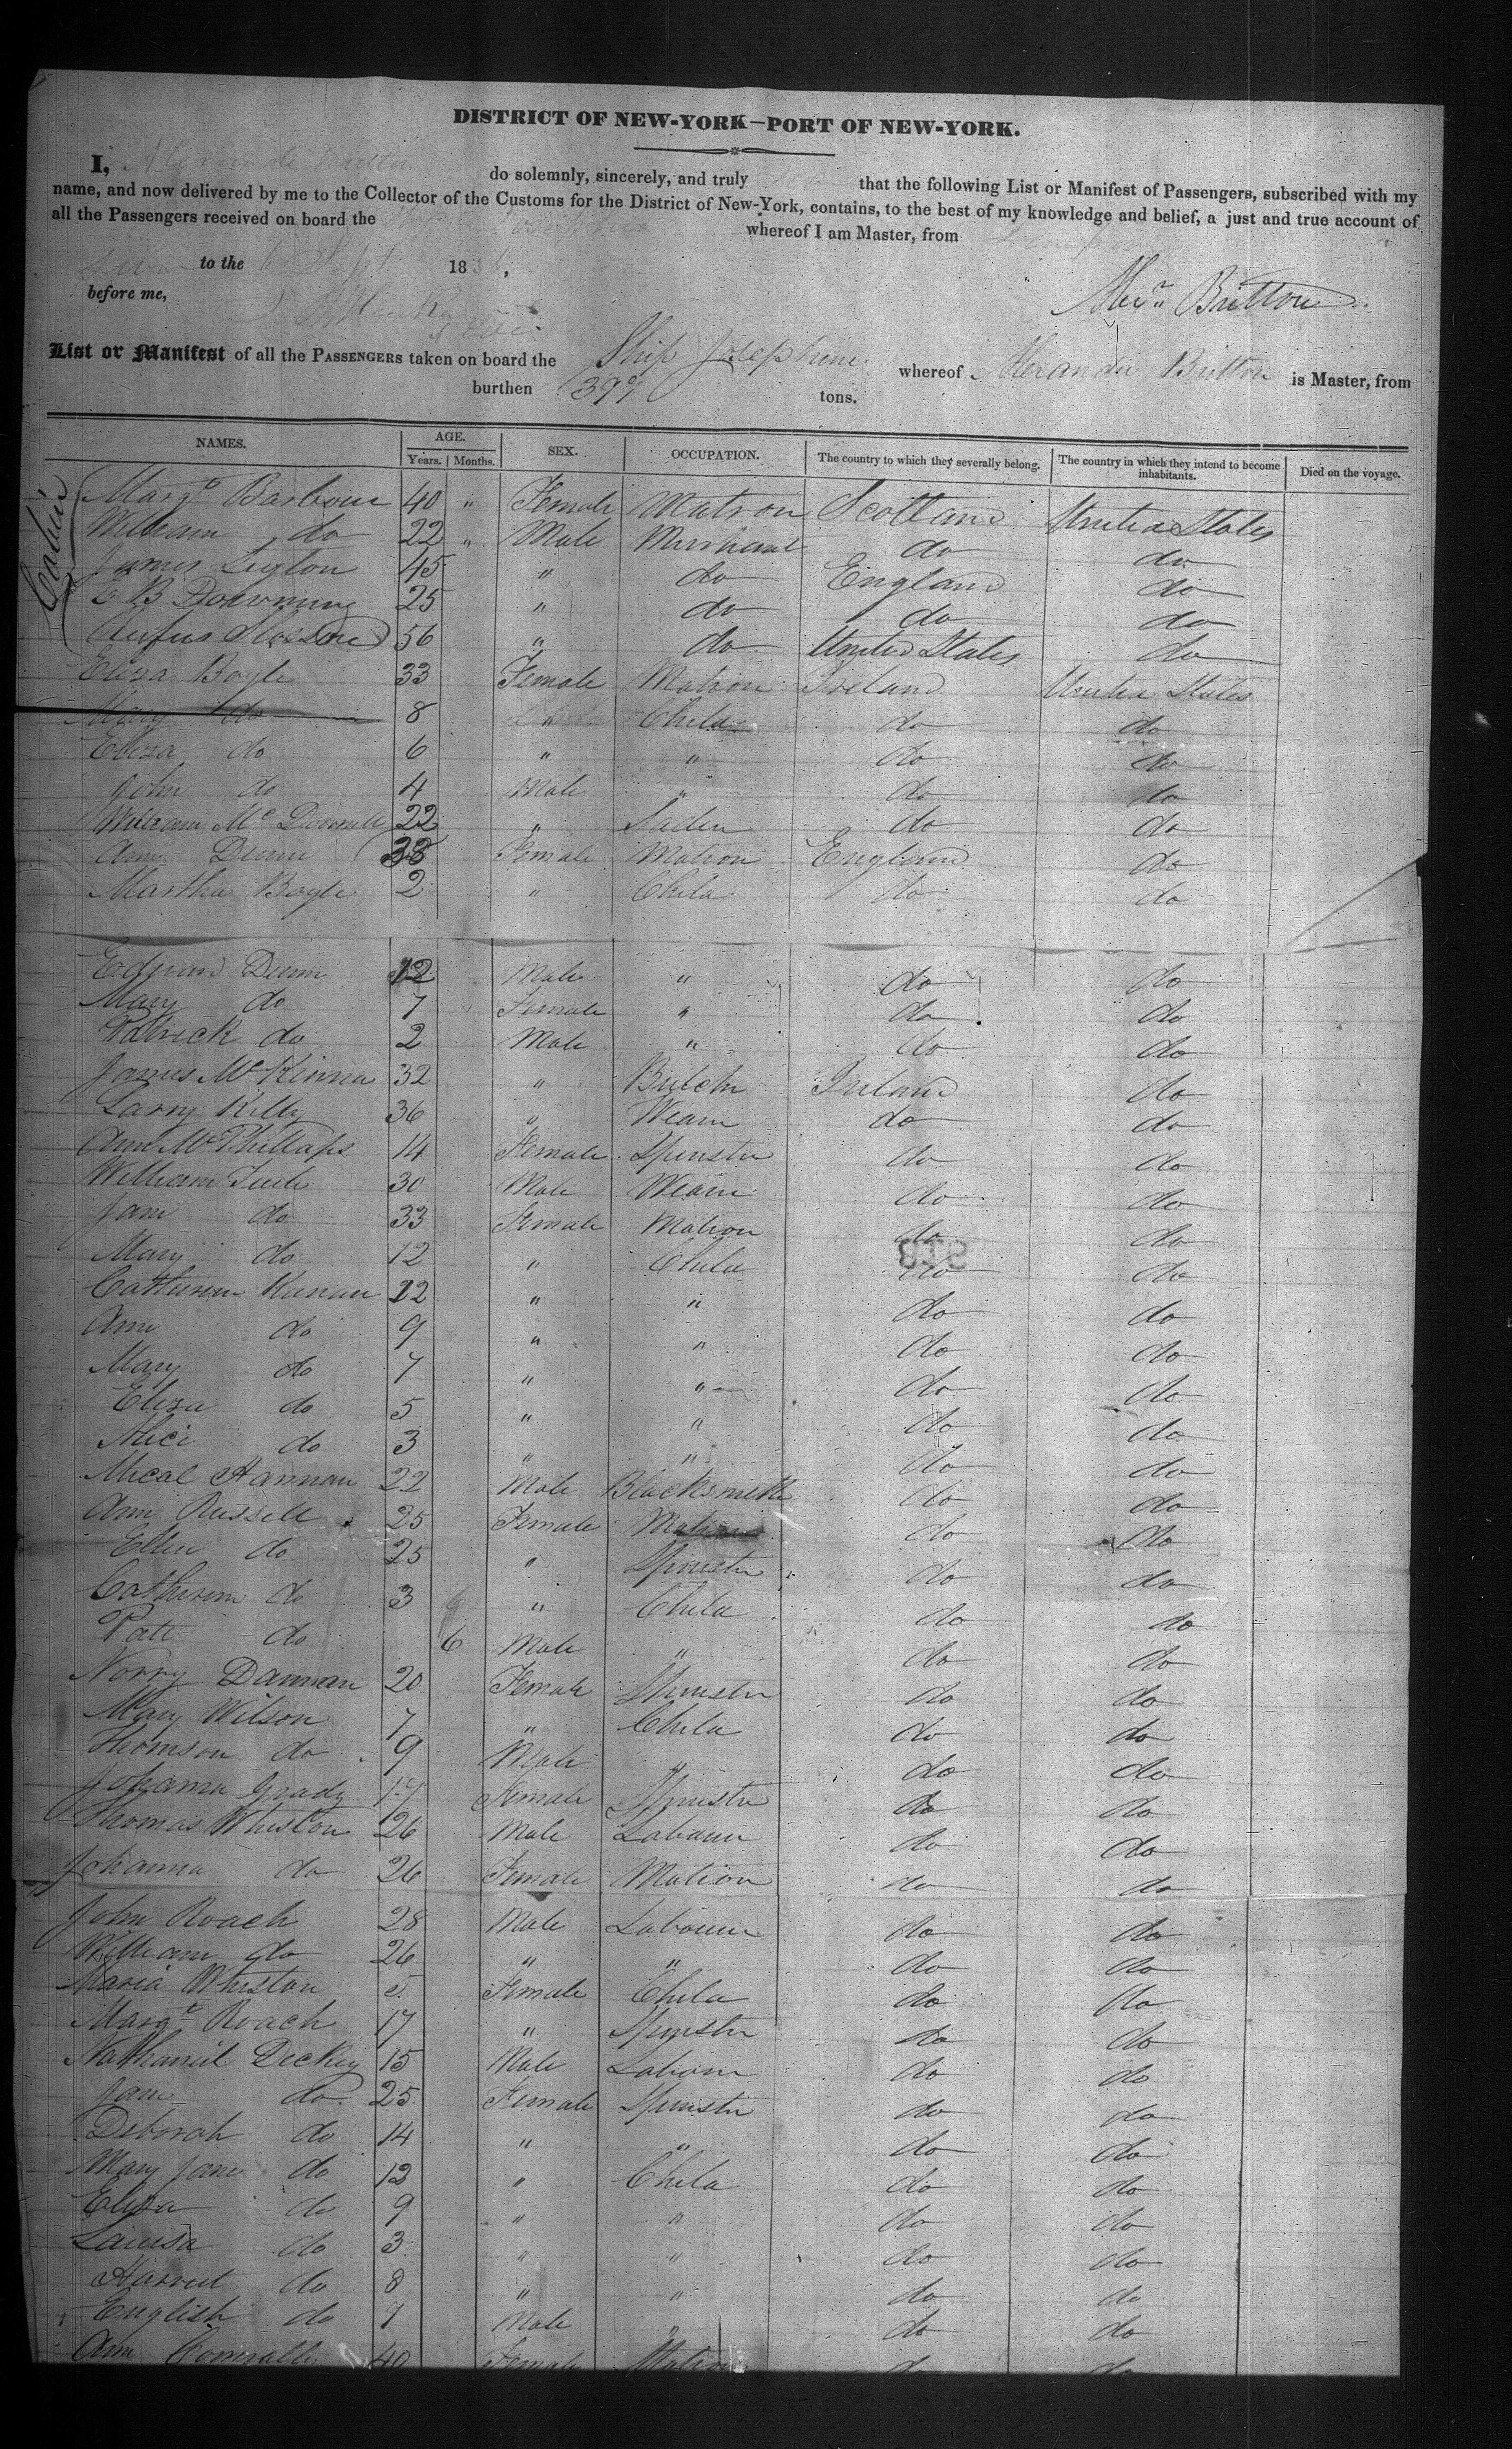 DISTRICT OF NEW-YORK—PORT OF NEW-YORK.
I, do solemnly, sincerely, and truly that the following List or Manifest of Passengers, subscribed with my
name, and now delivered by me to the Collector of the Customs for the District of New-York, contains, to the best of my knowledge and belief, a just and true account of
all the Passengers received on board the whereof I am Master, from
to the 6 Sept 183
before me,
Alexr Britton
List or Manifest of all the PASSENGERS taken on board the Ship Josephine whereof Alexander Britton is Master, from
burthen 397 tons.
NAMES. AGE. Years. Months. SEX. OCCUPATION. The country to which they severally belong. The country in which they intend to become inhabitants. Died on the voyage.
Cabin
Margt Barbour 40 " Female Matron Scotland United States
William do 22 " Male Merchant do do
James 45 " do England do
B Downing 25 " do do do
Rufus 56 " do United States do
Eliza Boyle 33 Female Matron Ireland United States
Mary do 8 " Child do do
Eliza do 6 " " do do
John do 4 Male " do do
William Mc 22 " do do
Ann Dunn 38 Female Matron England do
Martha Boyle 2 " Child do do
Edward Dunn 12 Male " do do
Mary do 7 Female " do do
Patrick do 2 Male " do do
James McKinna 32 " Butch Ireland do
Larry Killy 36 " do do
Ann McPhillaps 14 Female Spinster do do
William 30 Male do do
Jane do 33 Female Matron do do
Mary do 12 " Child do do
Catherine 12 " " do do
Ann do 9 " " do do
Mary do 7 " " do do
Eliza do 5 " " do do
Alice do 3 " " do do
Mical Hannan 22 Male Blacksmith do do
Ann Russell 25 Female Matron do do
Ellen do 25 " Spinster do do
Catherine do 3 " Child do do
Patt do 6 Male " do do
Norry Dannan 20 Female Spinster do do
Mary Wilson 7 " Child do do
Thomson do 9 Male " do do
Johanna Grady 17 Female Spinster do do
Thomas Whiston 26 Male Labourer do do
Johanna do 26 Female Matron do do
John Roach 28 Male Labourer do do
William do 26 " " do do
Maria Whiston 5 Female Child do do
Margt Roach 17 " Spinster do do
Nathaniel Dickey 15 Male Labour do do
Jane do 25 Female Spinster do do
Deborah do 14 " " do do
Mary Jane do 12 " Child do do
Eliza do 9 " " do do
Louisa do 3 " " do do
Harriet do 8 " " do do
English do 7 Male " do do
Ann 40 Female Matron do do